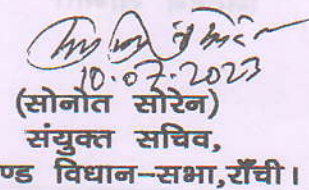 10.07.2023
(सोनोत सोरेन)
संयुक्त सचिव,
ण्ड विधान-सभा,राँची।